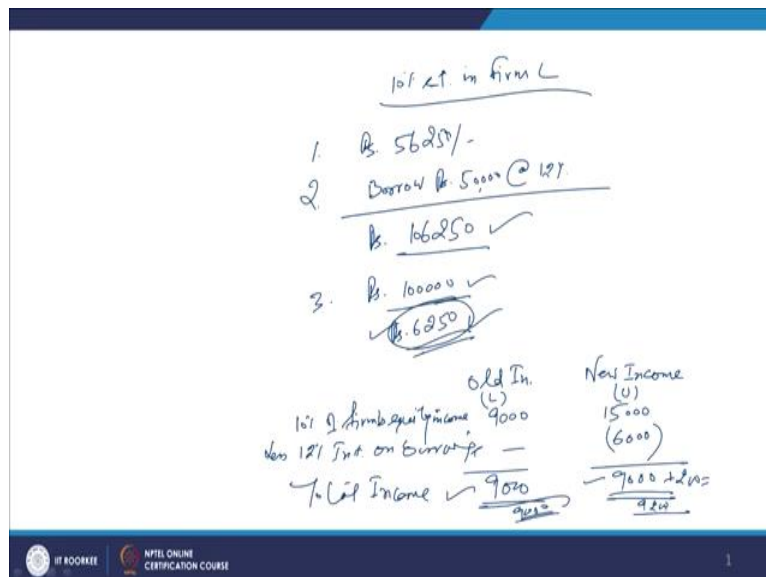 10% st. in firm L
1. Rs. 56250/-
2. Borrow Rs. 50,000 @ 12%
Rs. 106250 ✓
3. Rs. 100000 ✓
✓ Rs. 6250 ✓
Old In. New Income
(L) (U)
10% of firm's equity income 9000 15000
Less 12% Int. on borrowings — (6000)
Total Income ✓ 9000 ✓ 9000 +200=
9000 9200
IIT ROORKEE NPTEL ONLINE
CERTIFICATION COURSE
1